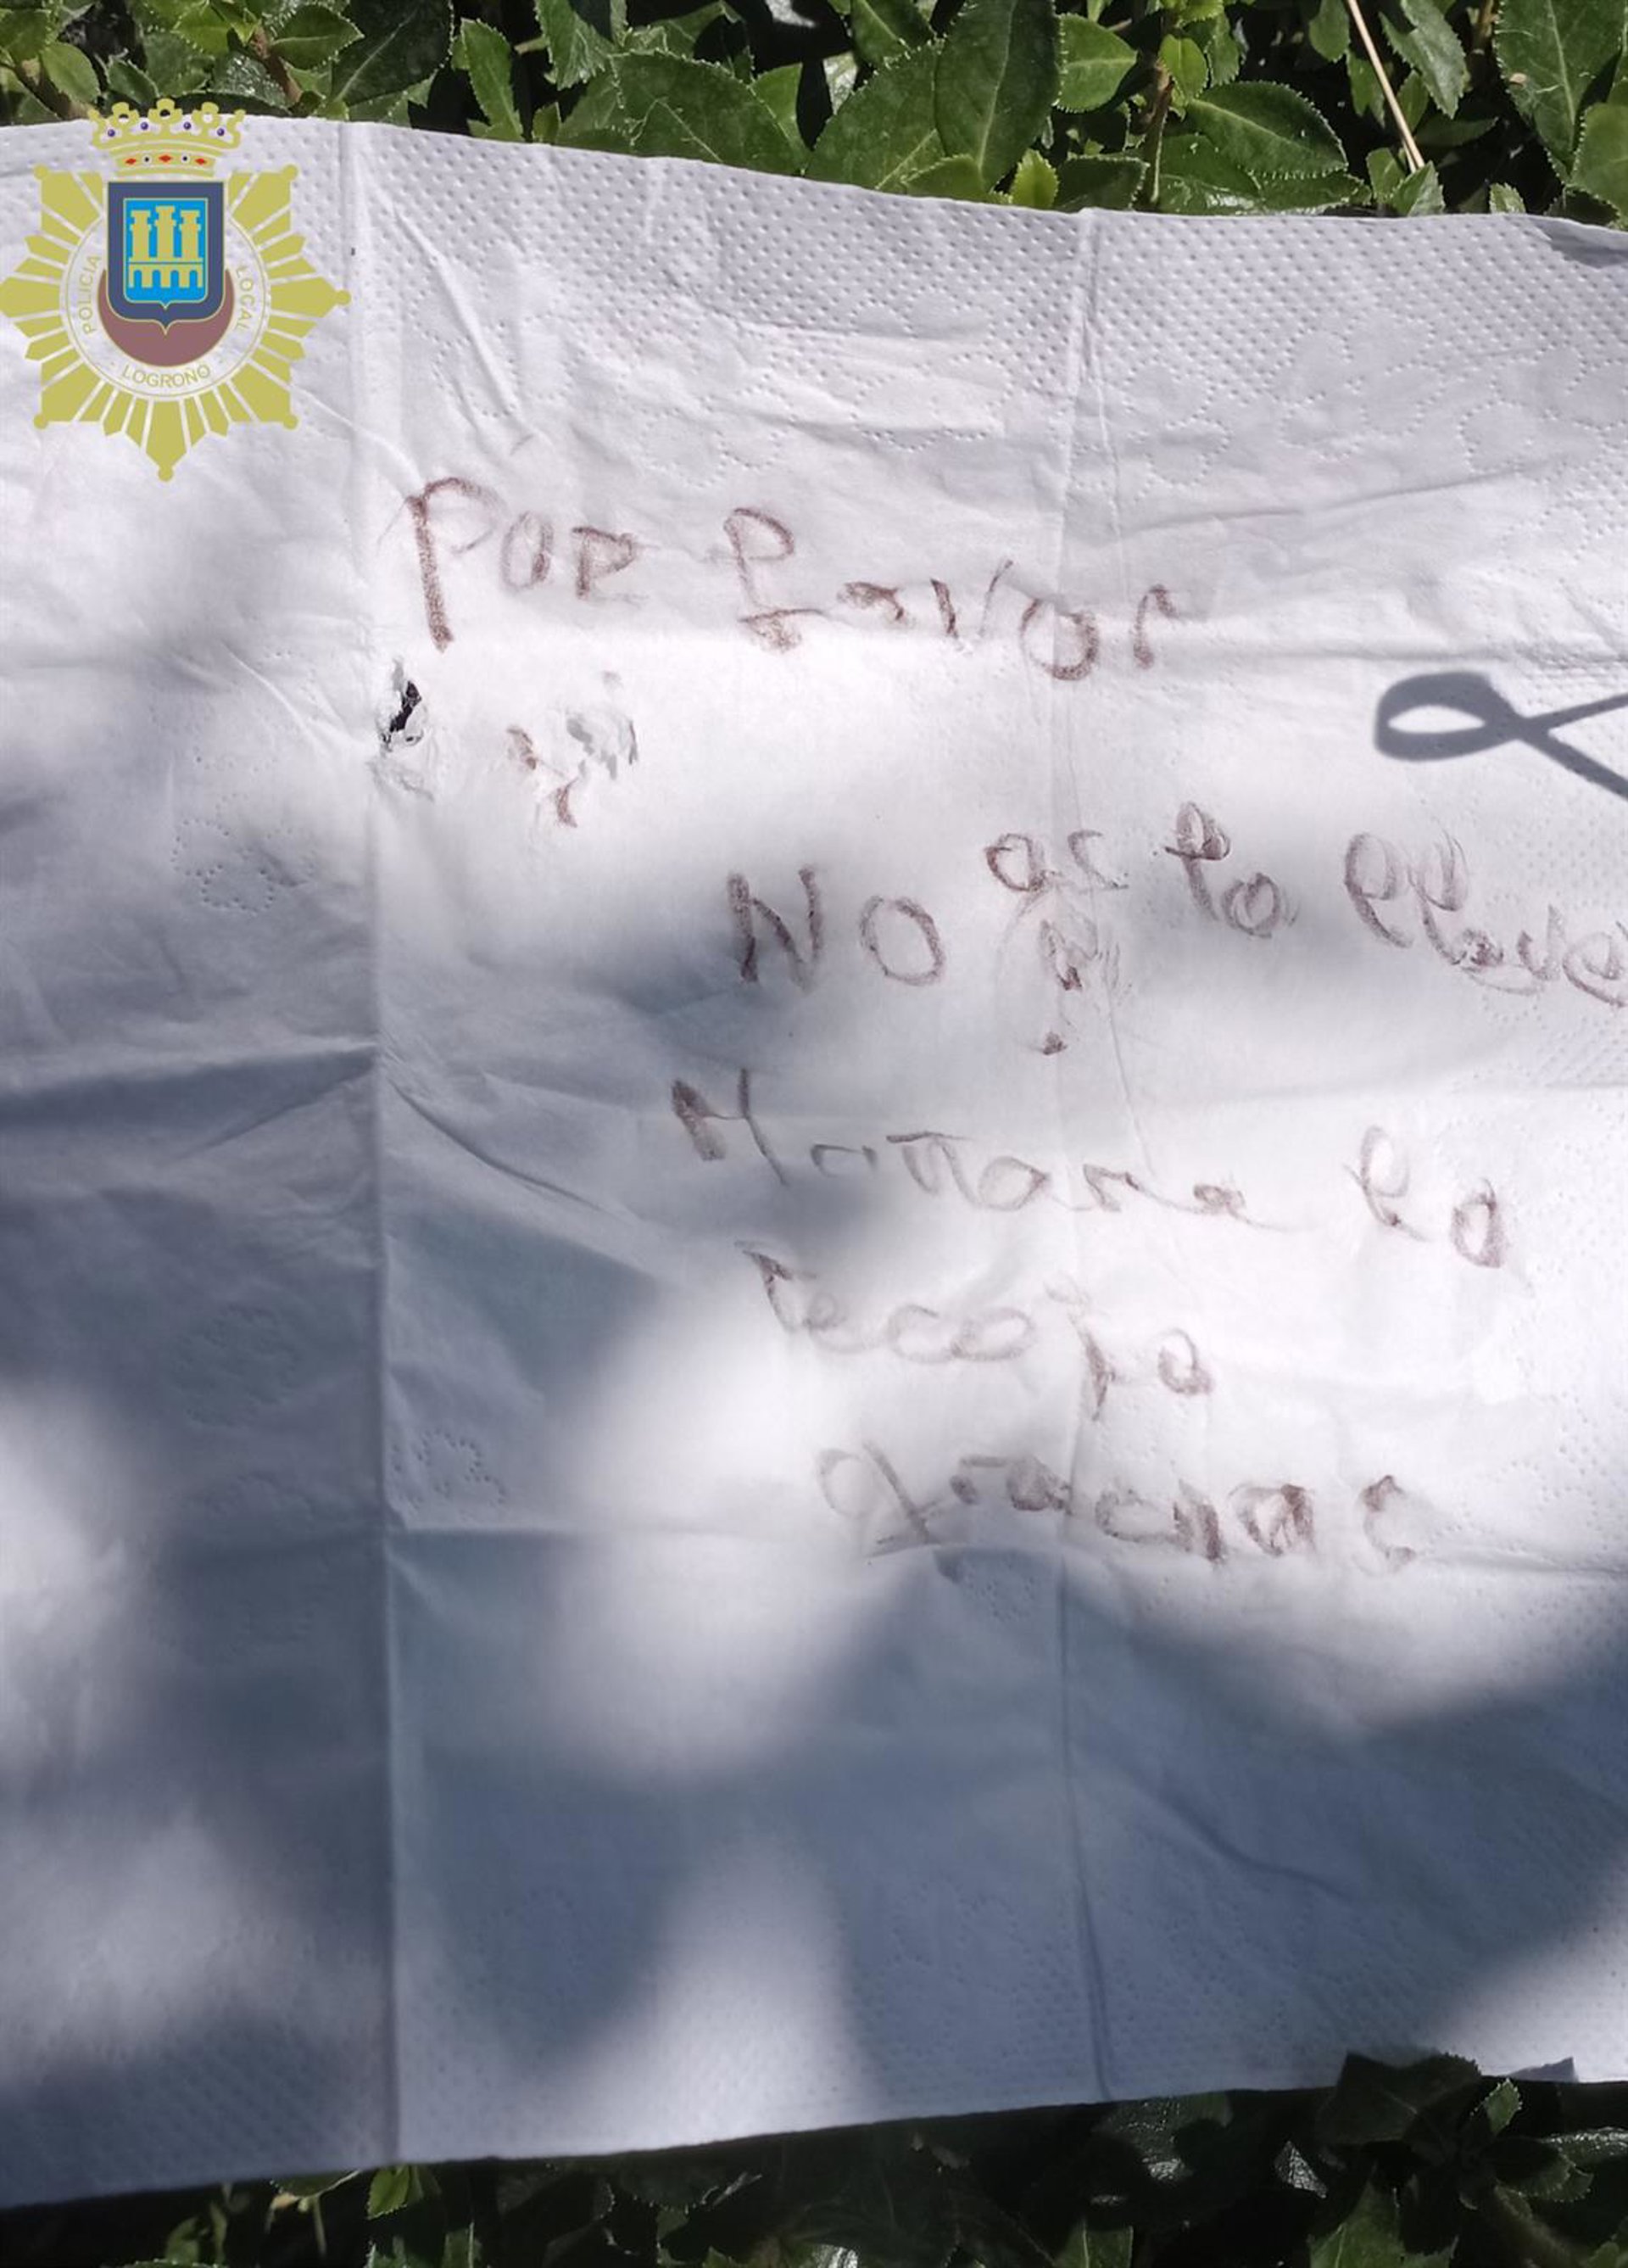 POLICIA LOCAL
LOGROÑO
Por favor
NO os lo lleve
Mañana lo
recojo
gracias